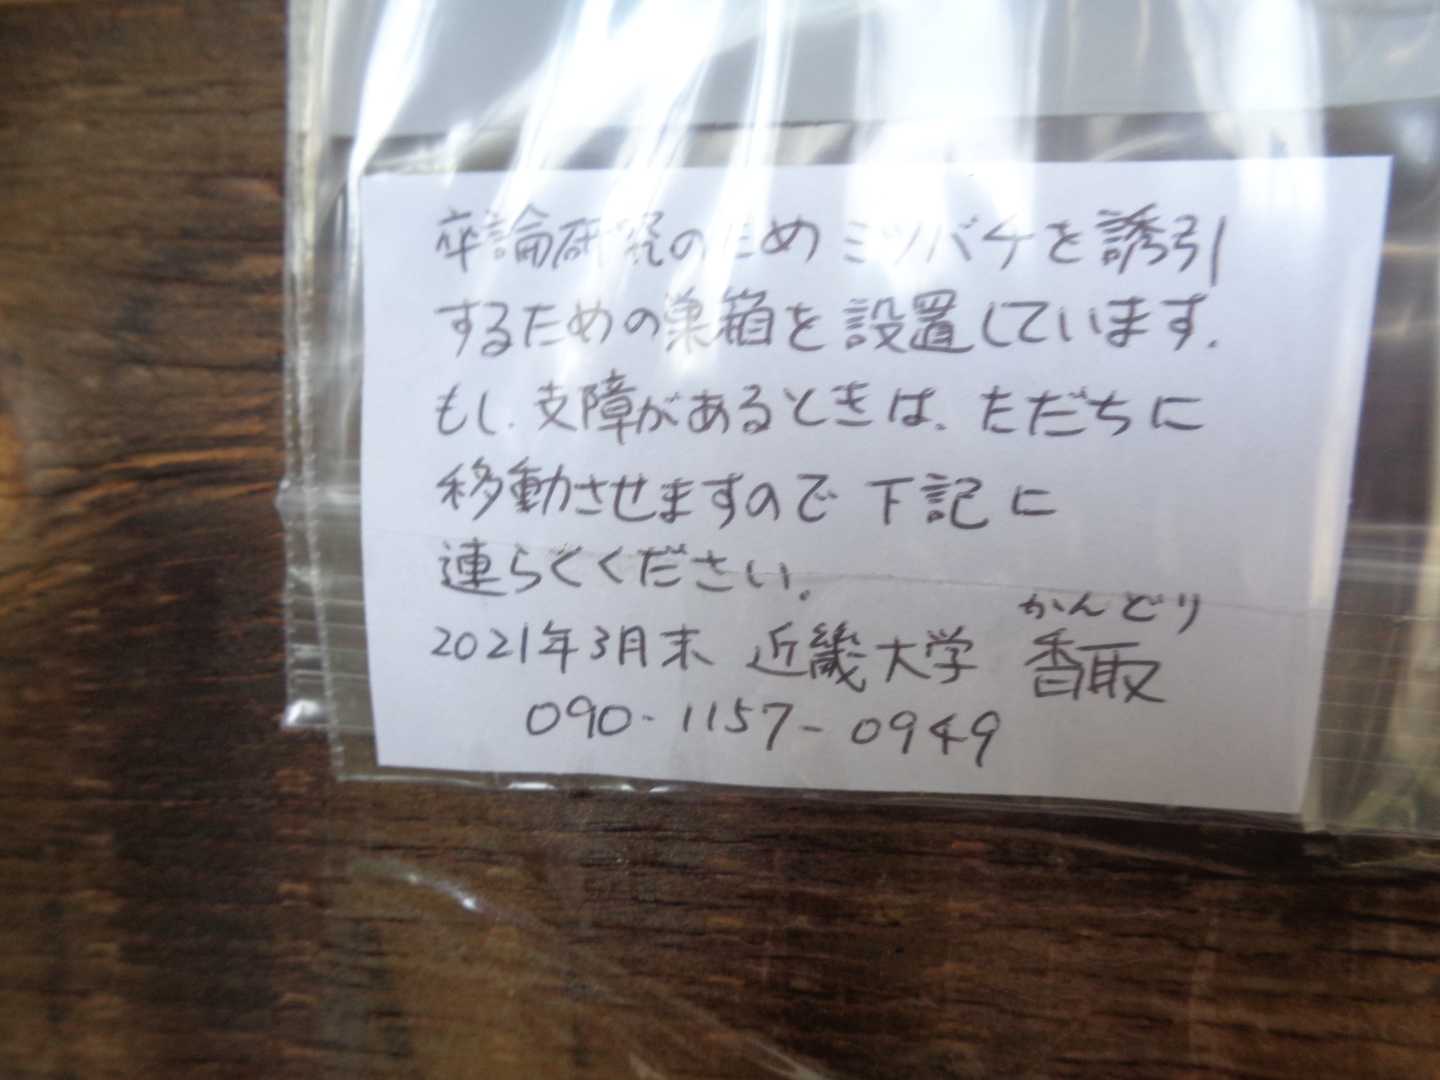 卒論研究のためミツバチを誘引
するための巣箱を設置しています.
もし、支障があるときは、ただちに
移動させますので下記に
連らくください.
かんどり
2021年3月末 近畿大学 香取
090-1157-0949